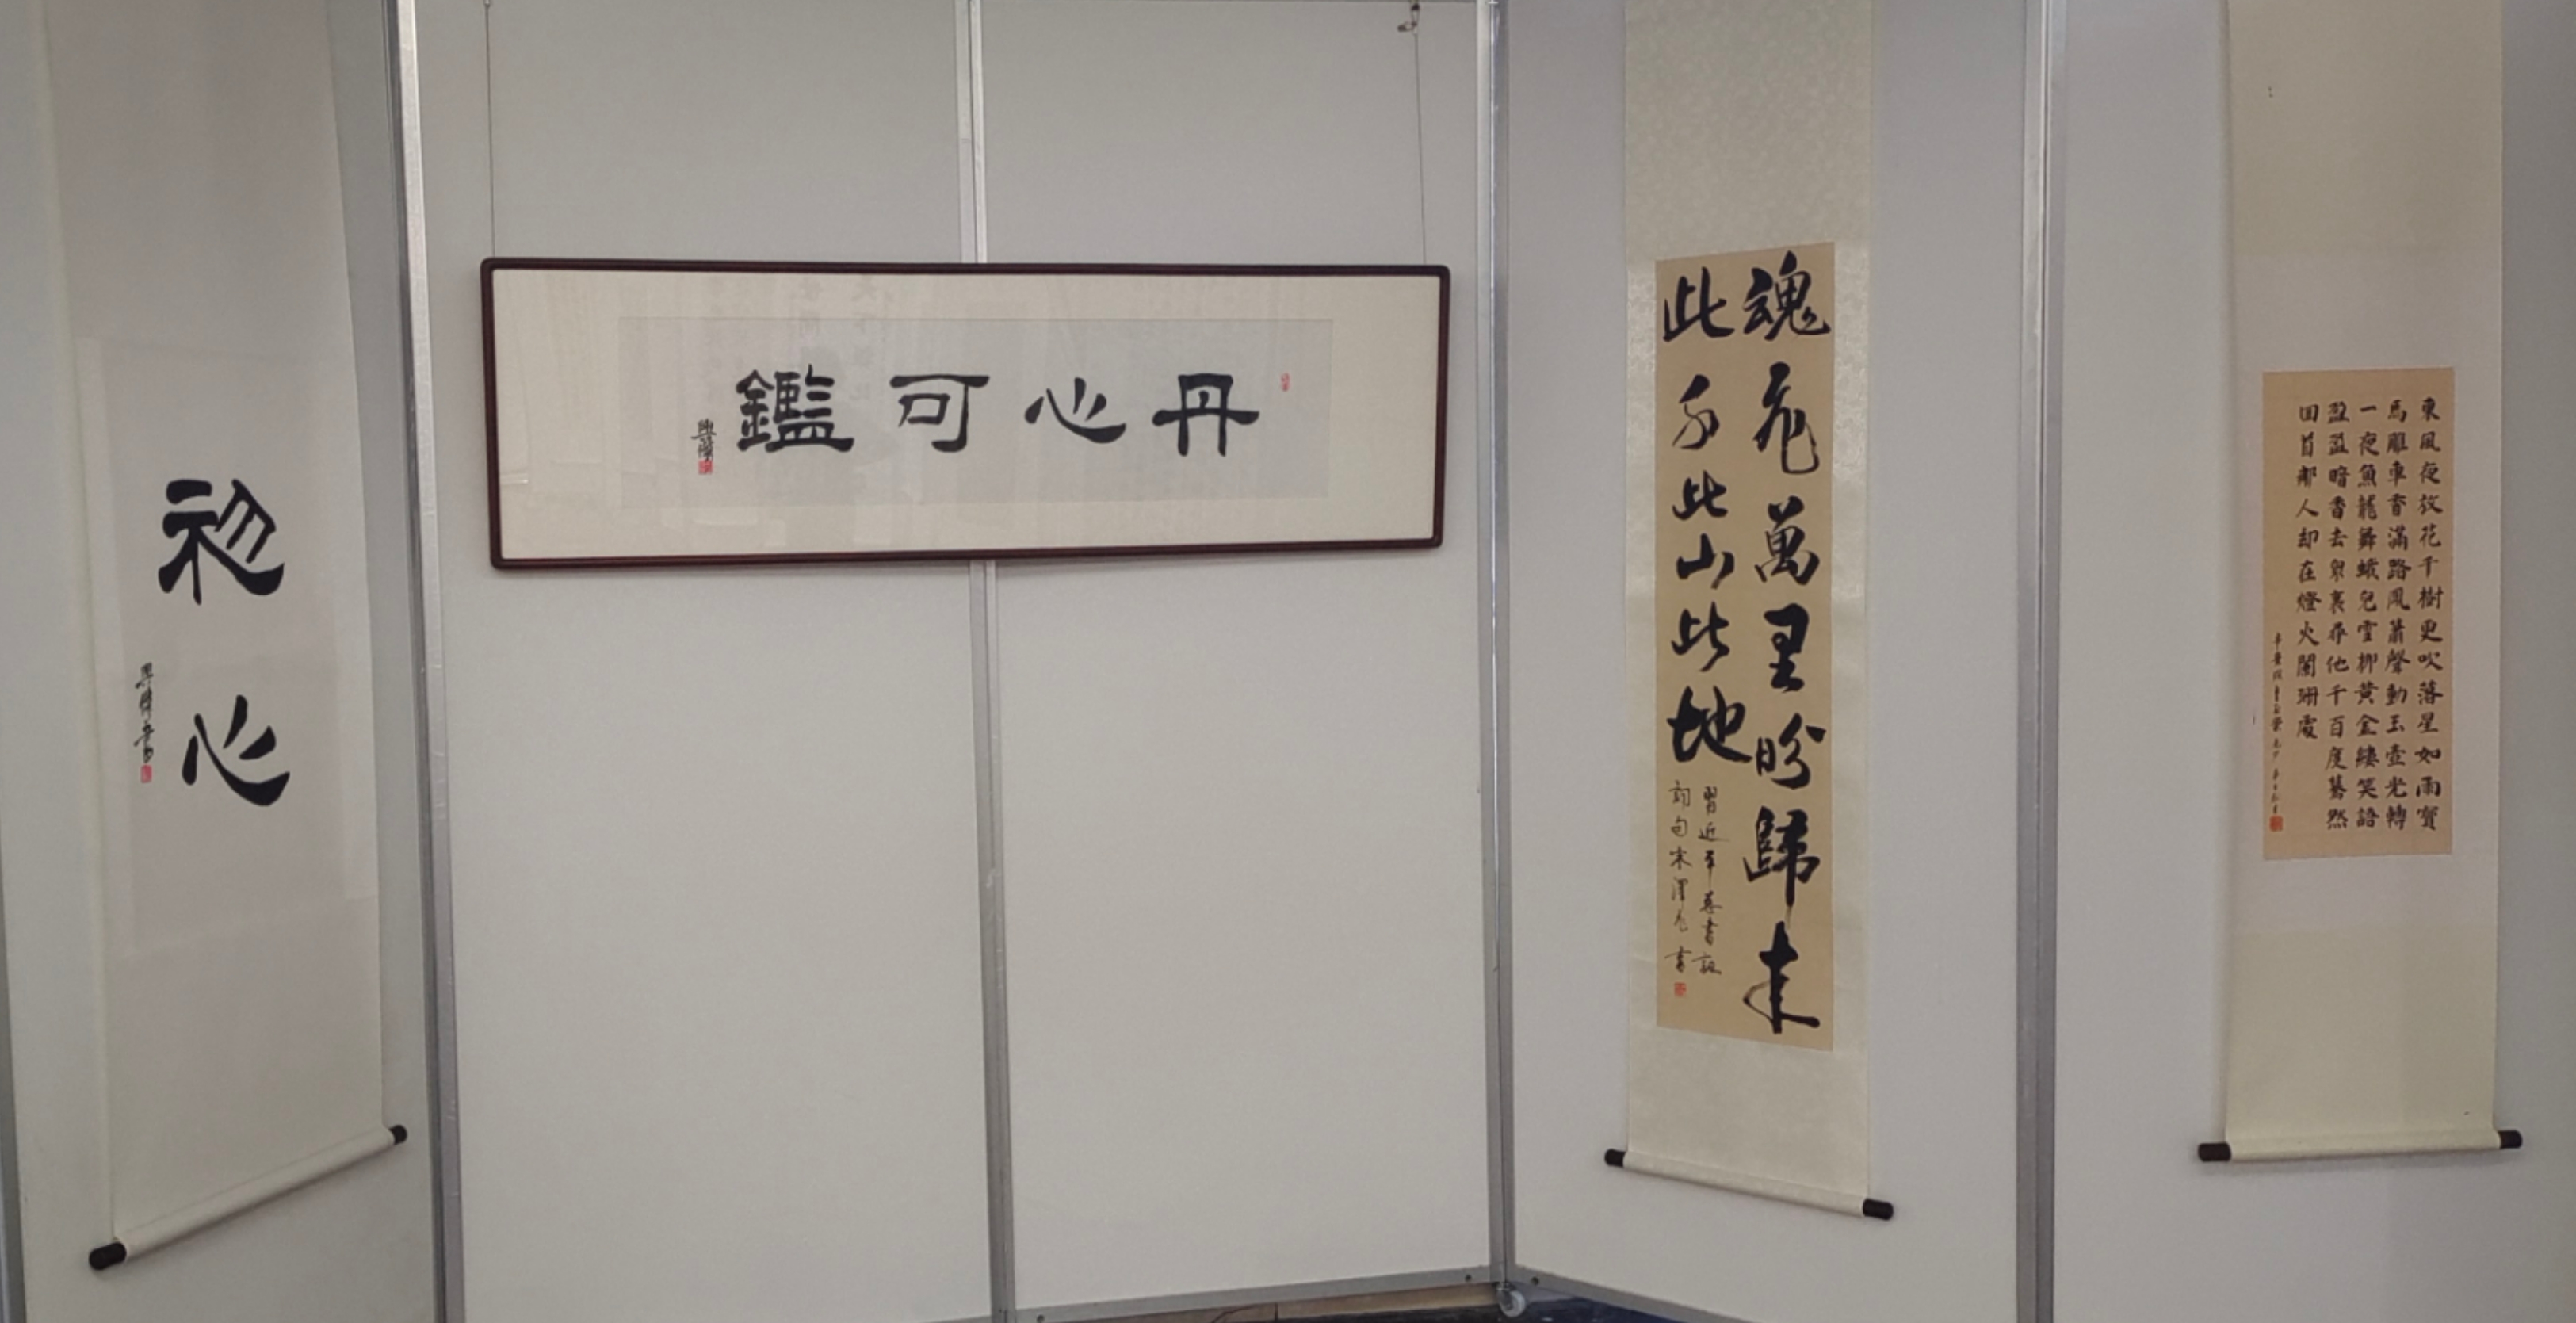 初心
丹心可鑑
魂飛萬里盼歸來
此水此山此地
習近平總書記
詞句宋澤元書
東風夜放花千樹更吹落星如雨寶
馬雕車香滿路鳳蕭聲動玉壺光轉
一夜魚龍舞蛾兒雪柳黃金縷笑語
盈盈暗香去衆裏尋他千百度驀然
回首那人却在燈火闌珊處